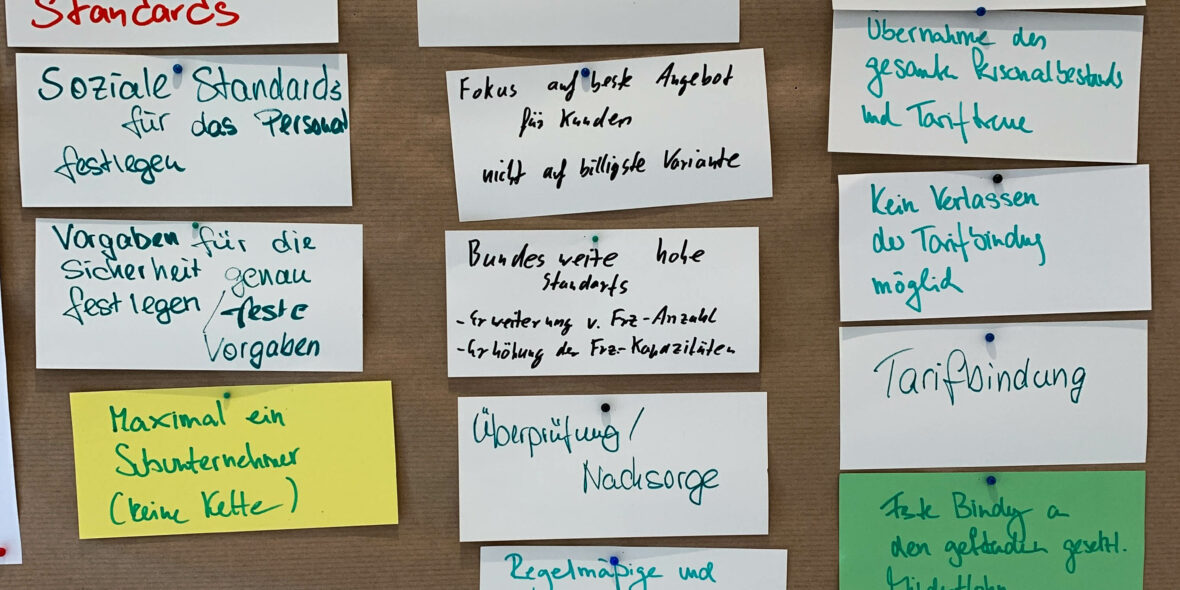 Standards
Soziale Standards
für das Personal
festlegen
Vorgaben für die
Sicherheit genau
festlegen / feste
Vorgaben
Maximal ein
Subunternehmer
(keine Kette)
Fokus auf beste Angebot
für Kunden
nicht auf billigste Variante
Bundesweite hohe
Standarts
- Erweiterung v. Frz-Anzahl
- Erhöhung der Frz-Kapazitäten
Überprüfung /
Nachsorge
Regelmäßige und
Übernahme des
gesamten Personalbestands
und Tariftreue
Kein Verlassen
der Tarifbindung
möglich
Tarifbindung
Feste Bindung an
den geltenden gesetzl.